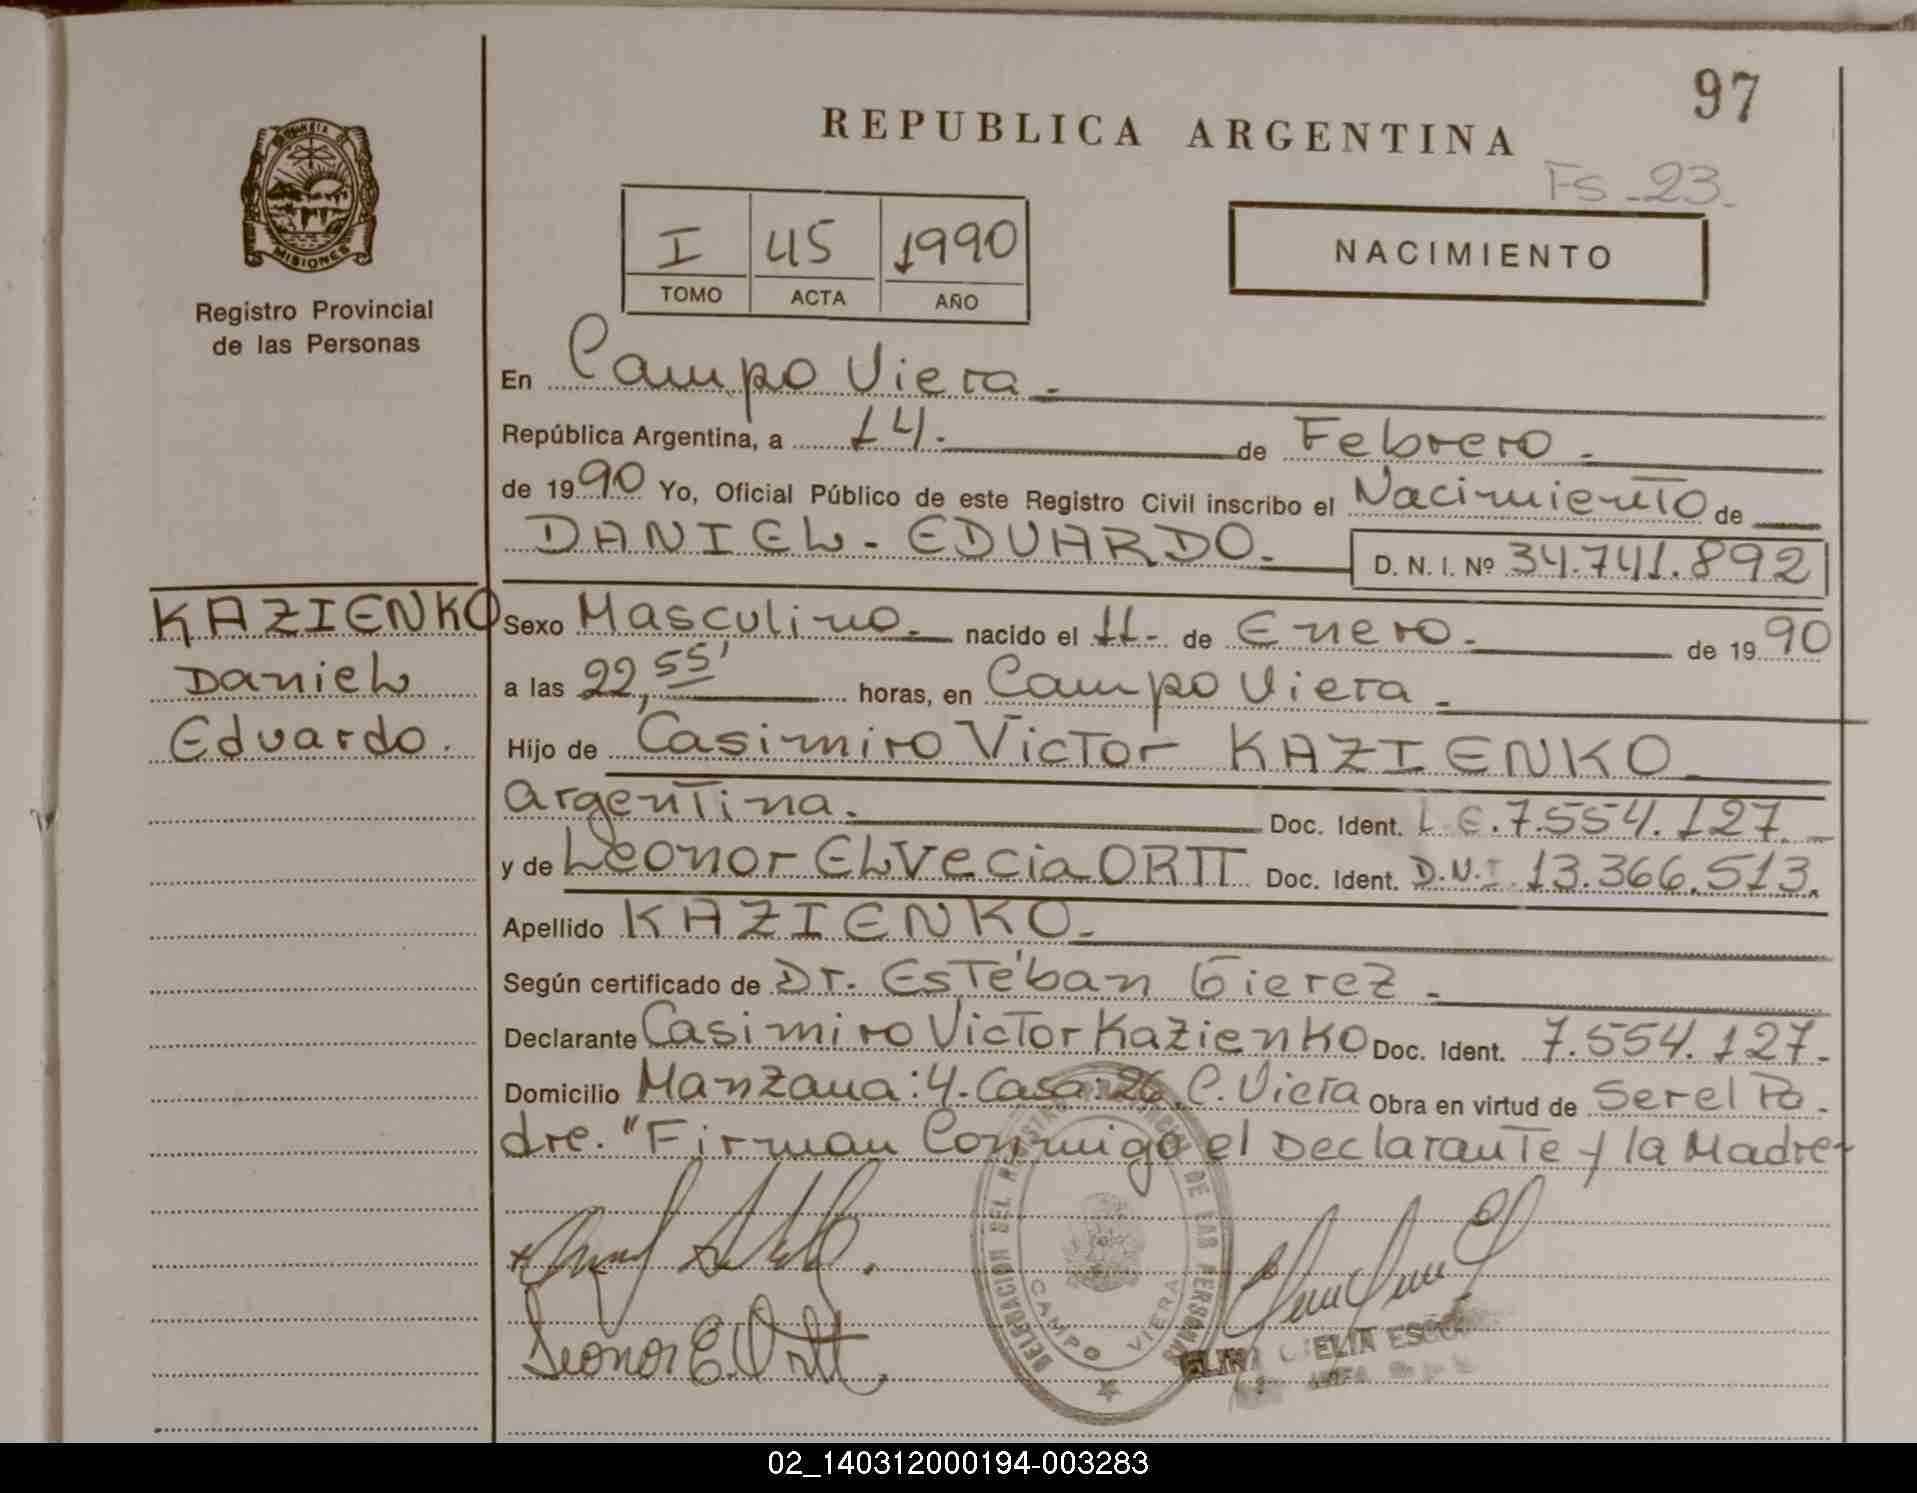 97
REPUBLICA ARGENTINA
Fs - 23.
PROVINCIA DE
MISIONES
Registro Provincial
de las Personas
I 45 1990
TOMO ACTA AÑO
NACIMIENTO
En Campo Viera.-
República Argentina, a 14.- de Febrero.-
de 1990 Yo, Oficial Público de este Registro Civil inscribo el Nacimiento de
DANIEL - EDUARDO.- D. N. I. Nº 34.741.892
KAZIENKO
Daniel
Eduardo.
Sexo Masculino.- nacido el 11- de Enero.- de 1990
a las 22,55' horas, en Campo Viera.-
Hijo de Casimiro Victor KAZIENKO
argentina.- Doc. Ident. L.E. 7.554.127.-
y de Leonor ELVecia ORTT Doc. Ident. D.N.I. 13.366.513.
Apellido KAZIENKO.-
Según certificado de Dr. Estéban Gierez.-
Declarante Casimiro Victor Kazienko Doc. Ident. 7.554.127.-
Domicilio Manzana: 4. Casa: 26. C. Viera Obra en virtud de Ser el Pa-
dre. "Firman Conmigo el Declarante y la Madre-
DELEGACION DEL REGISTRO PROVINCIAL DE LAS PERSONAS
CAMPO VIERA
Leonor E. Ortt
02_140312000194-003283